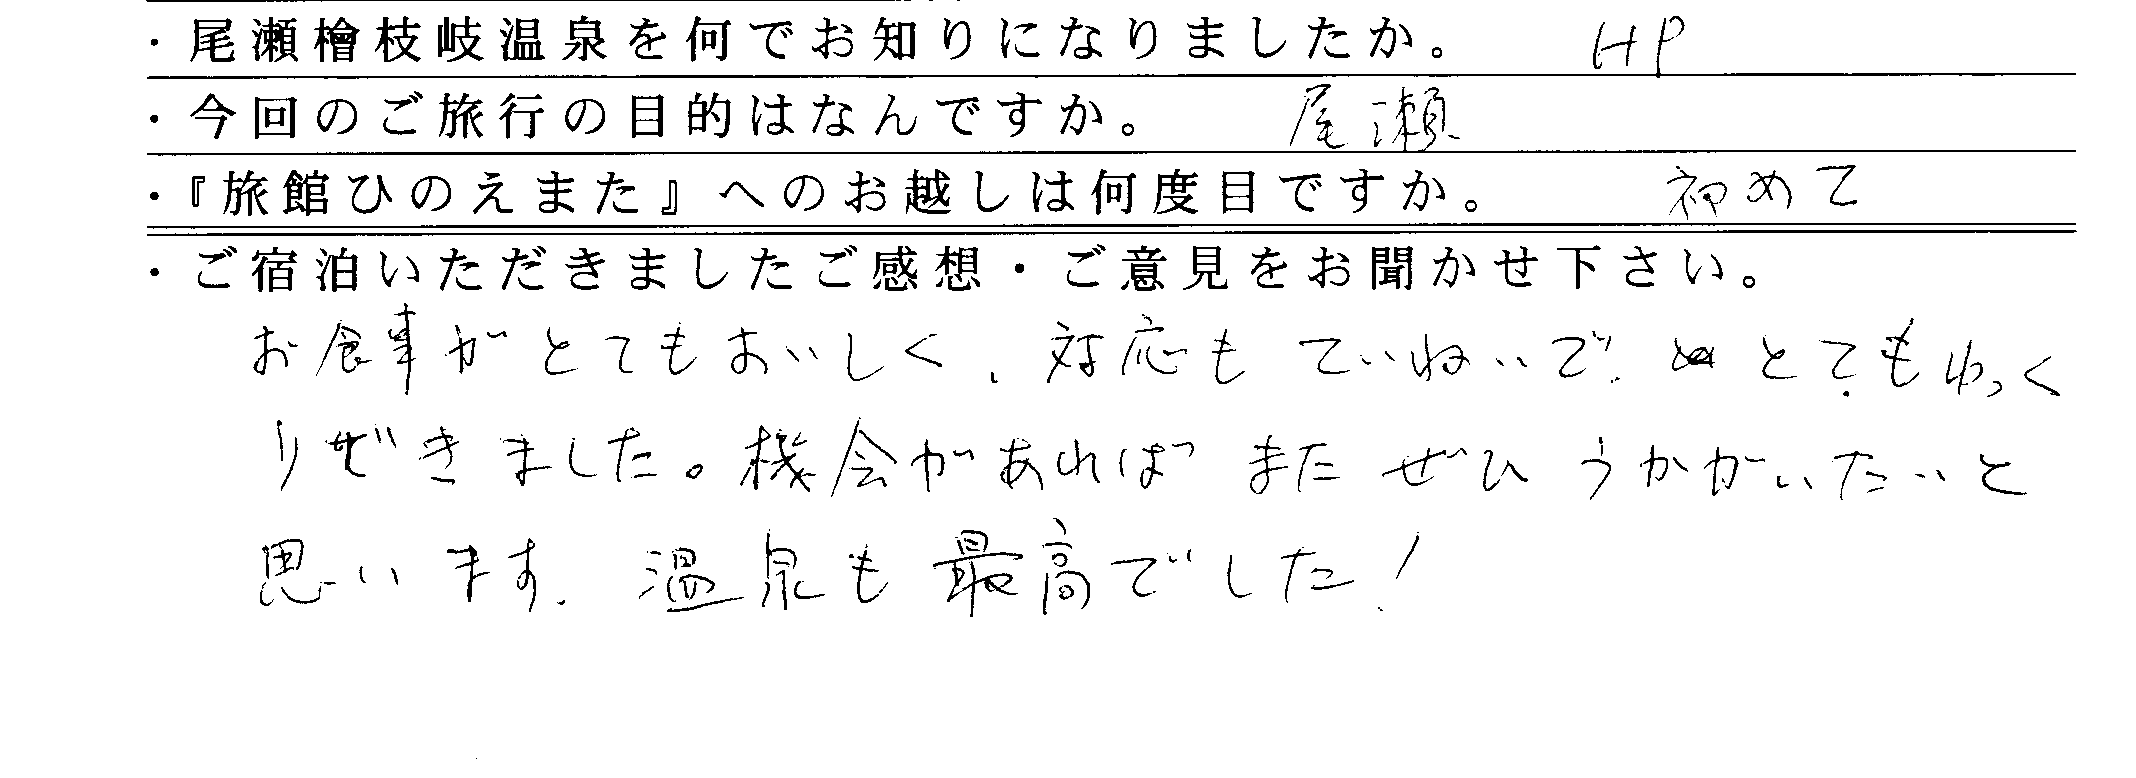 ・尾瀬檜枝岐温泉を何でお知りになりましたか。 HP
・今回のご旅行の目的はなんですか。 尾瀬
・『旅館ひのえまた』へのお越しは何度目ですか。 初めて
・ご宿泊いただきましたご感想・ご意見をお聞かせ下さい。
お食事がとてもおいしく、対応もていねいで、とてもゆっく
りできました。機会があればまたぜひうかがいたいと
思います。温泉も最高でした!